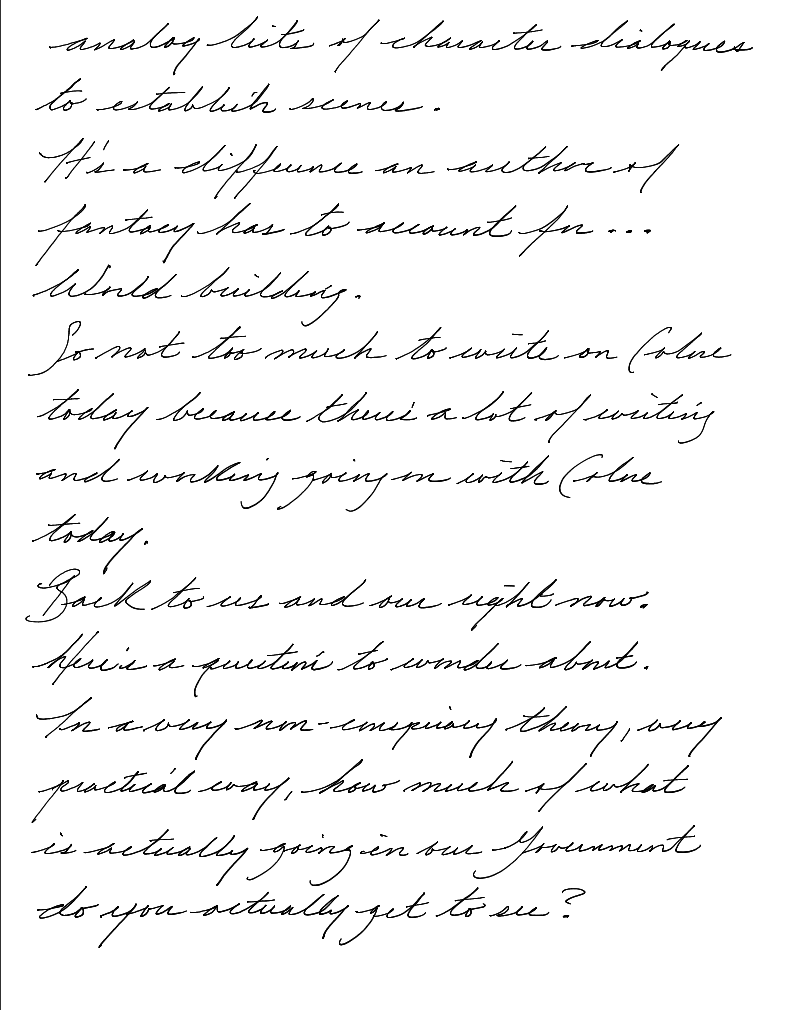 analog bits of character dialogues
to establish scenes.
It's a difference an author of
fantasy has to account for...
World building.
So not too much to write on
today because there's a lot of writing
and working going on with
today.
Back to us and our right now.
Here's a question to wonder about.
In a very non-conspiracy theory, very
practical way, how much of what
is actually going in our Government
do you actually get to see?